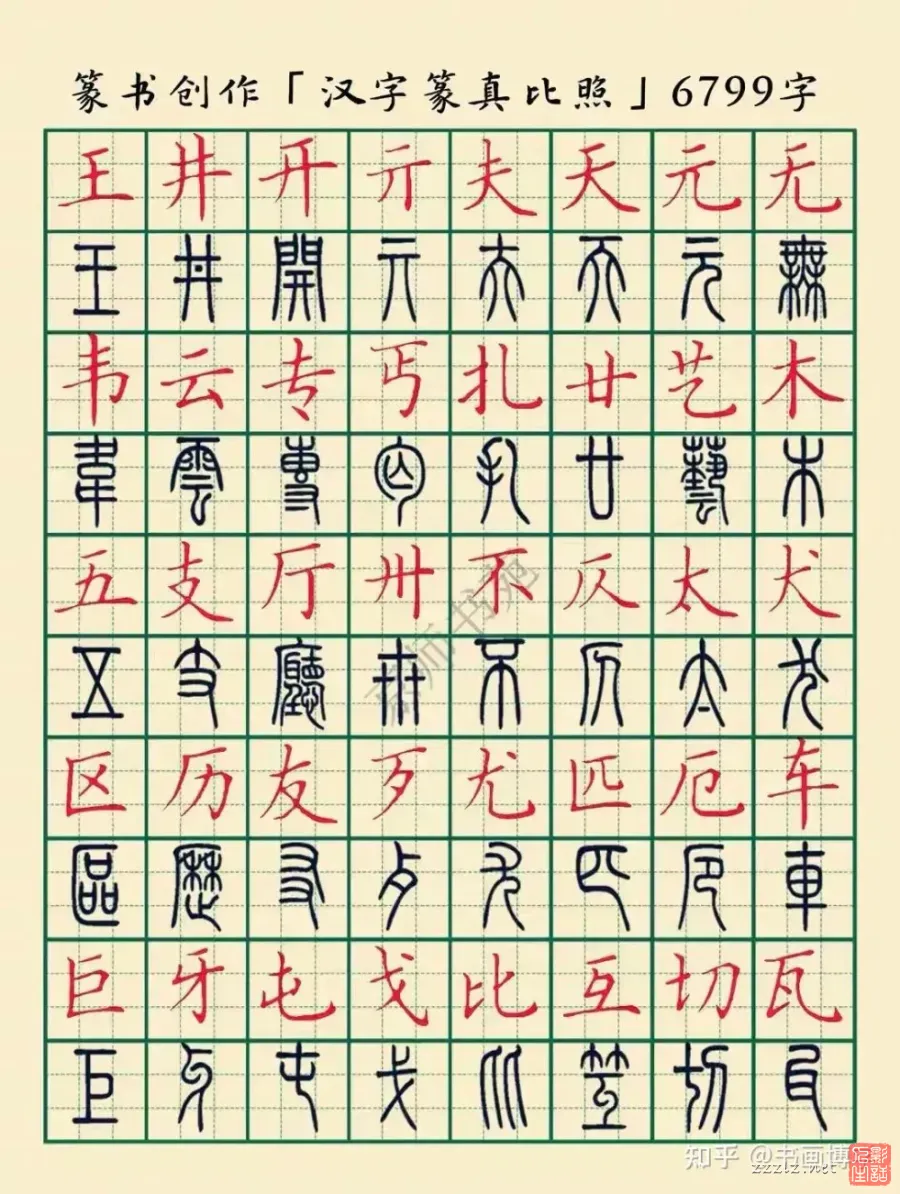 篆书创作「汉字篆真比照」6799字
王井开亓夫天元无
王井開亓夫天元無
韦云专丐扎廿艺木
韋雲專丏扎廿藝木
五支厅卅不仄太犬
五支廳卅不仄太犬
区历友歹尤匹厄车
區歷友歹尤匹厄車
巨牙屯戈比互切瓦
巨牙屯戈比互切瓦
知乎 @书画博
zzziz.net